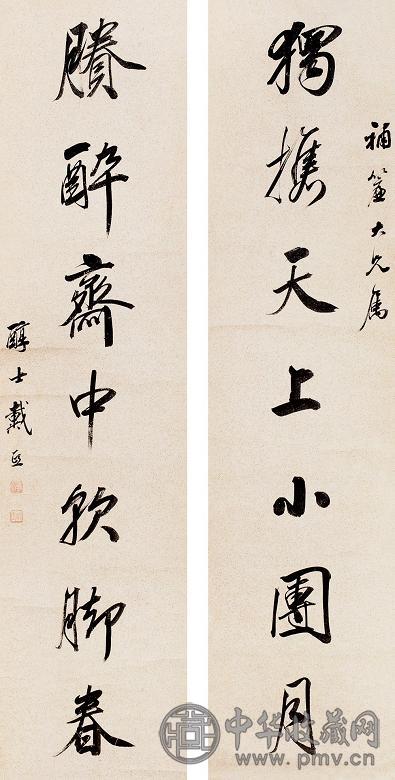 補大兄屬
獨攜天上小團月
賸醉齋中軟脚春
醇士戴熙
中华收藏网
www.pmv.cn